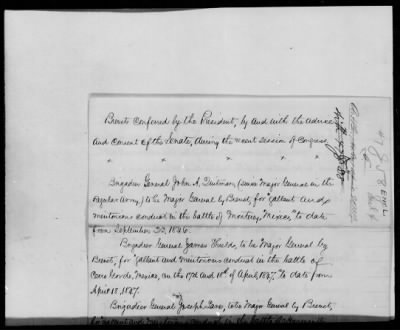 Brevets conferred by the President, by and with the advice
and consent of the Senate, during the recent session of Congress
x x x x x
Brigadier General John A. Quitman, (since Major General in the
regular Army,) to be Major General by Brevet, for "gallant and
meritorious conduct in the battle of Monterey, Mexico," to date
from September 23, 1846.
Brigadier General James Shields, to be Major General by
Brevet, for "gallant and meritorious conduct in the battle of
Cerro Gordo, Mexico, on the 17th and 18th of April, 1847," to date from
April 18, 1847.
Brigadier General Joseph Lane, to be Major General by Brevet,